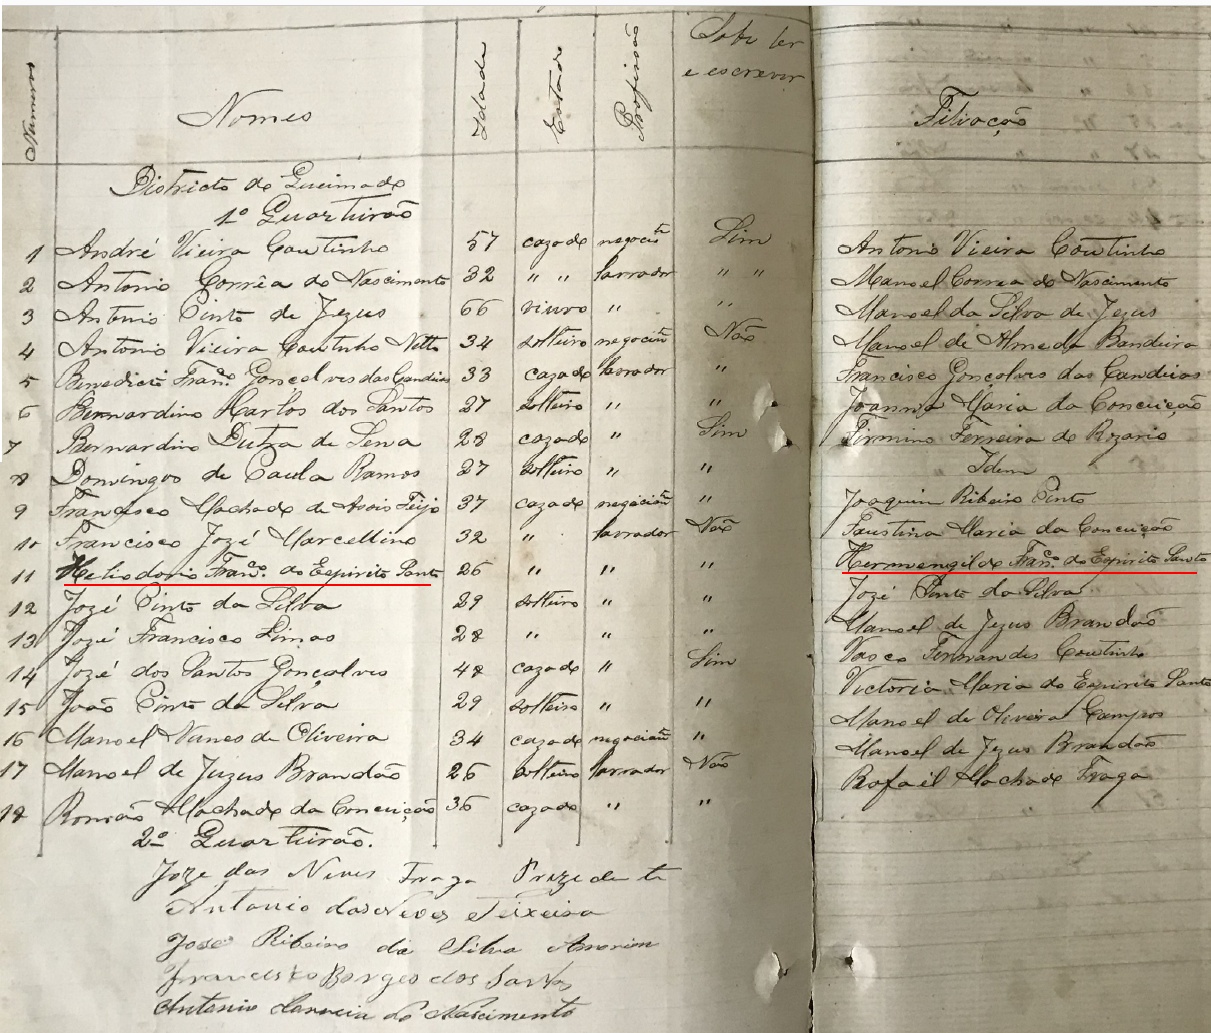 Numeros Nomes Idade Estado Profissão Sabe ler e escrever Filiação
Districto de Queimado
1º Quarteirão
1 André Vieira Coutinho 57 cazado negociñ Sim Antonio Vieira Coutinho
2 Antonio Corrêa do Nascimento 32 " " lavrador " " Manoel Correa do Nascimento
3 Antonio Pinto de Jezus 66 viuvo " " Manoel da Silva de Jezus
4 Antonio Vieira Coutinho Netto 34 solteiro negociñ Não Manoel de Almeda Bandeira
5 Benedicto Franco. Gonçalves das Candeias 33 cazado lavrador " Francisco Gonçalves das Candeias
6 Bernardino Carlos dos Santos 27 solteiro " " Joanna Maria da Conceição
7 Bernardino Dutra de Sena 28 cazado " Sim Firmino Ferreira do Rozario
8 Domingos de Paula Ramos 27 solteiro " " Idem
9 Francisco Machado de Feijo 37 cazado negociañ " Joaquim Ribeiro Pinto
10 Francisco Jozé Marcellino 32 " lavrador Não Faustina Maria da Conceição
11 Heliodorio Franco. do Espirito Santo 26 " " " Hermengildo Franco. do Espirito Santo
12 Jozé Pinto da Silva 29 solteiro " " Jozé Pinto da Silva
13 Jozé Francisco Limas 28 " " " Manoel de Jezus Brandão
14 Jozé dos Santos Gonçalves 48 cazado " Sim Vasco Fernandes Coutinho
15 João Pinto da Silva 29 solteiro " " Victoria Maria do Espirito Santo
16 Manoel Nunes de Oliveira 34 cazado negociañ " Manoel de Oliveira Campos
17 Manoel de Juzus Brandão 26 solteiro lavrador Não Manoel de Jezus Brandão
18 Romão Machado da Conceição 36 cazado " " Rafael Machado Fraga
2º Quarteirão.
Joze das Neves Fraga Prezidente
Antonio das Neves Teixeira
José Ribeiro da Silva Amorim
Francisco Borges dos Santos
Antonio Correia do Nascimento